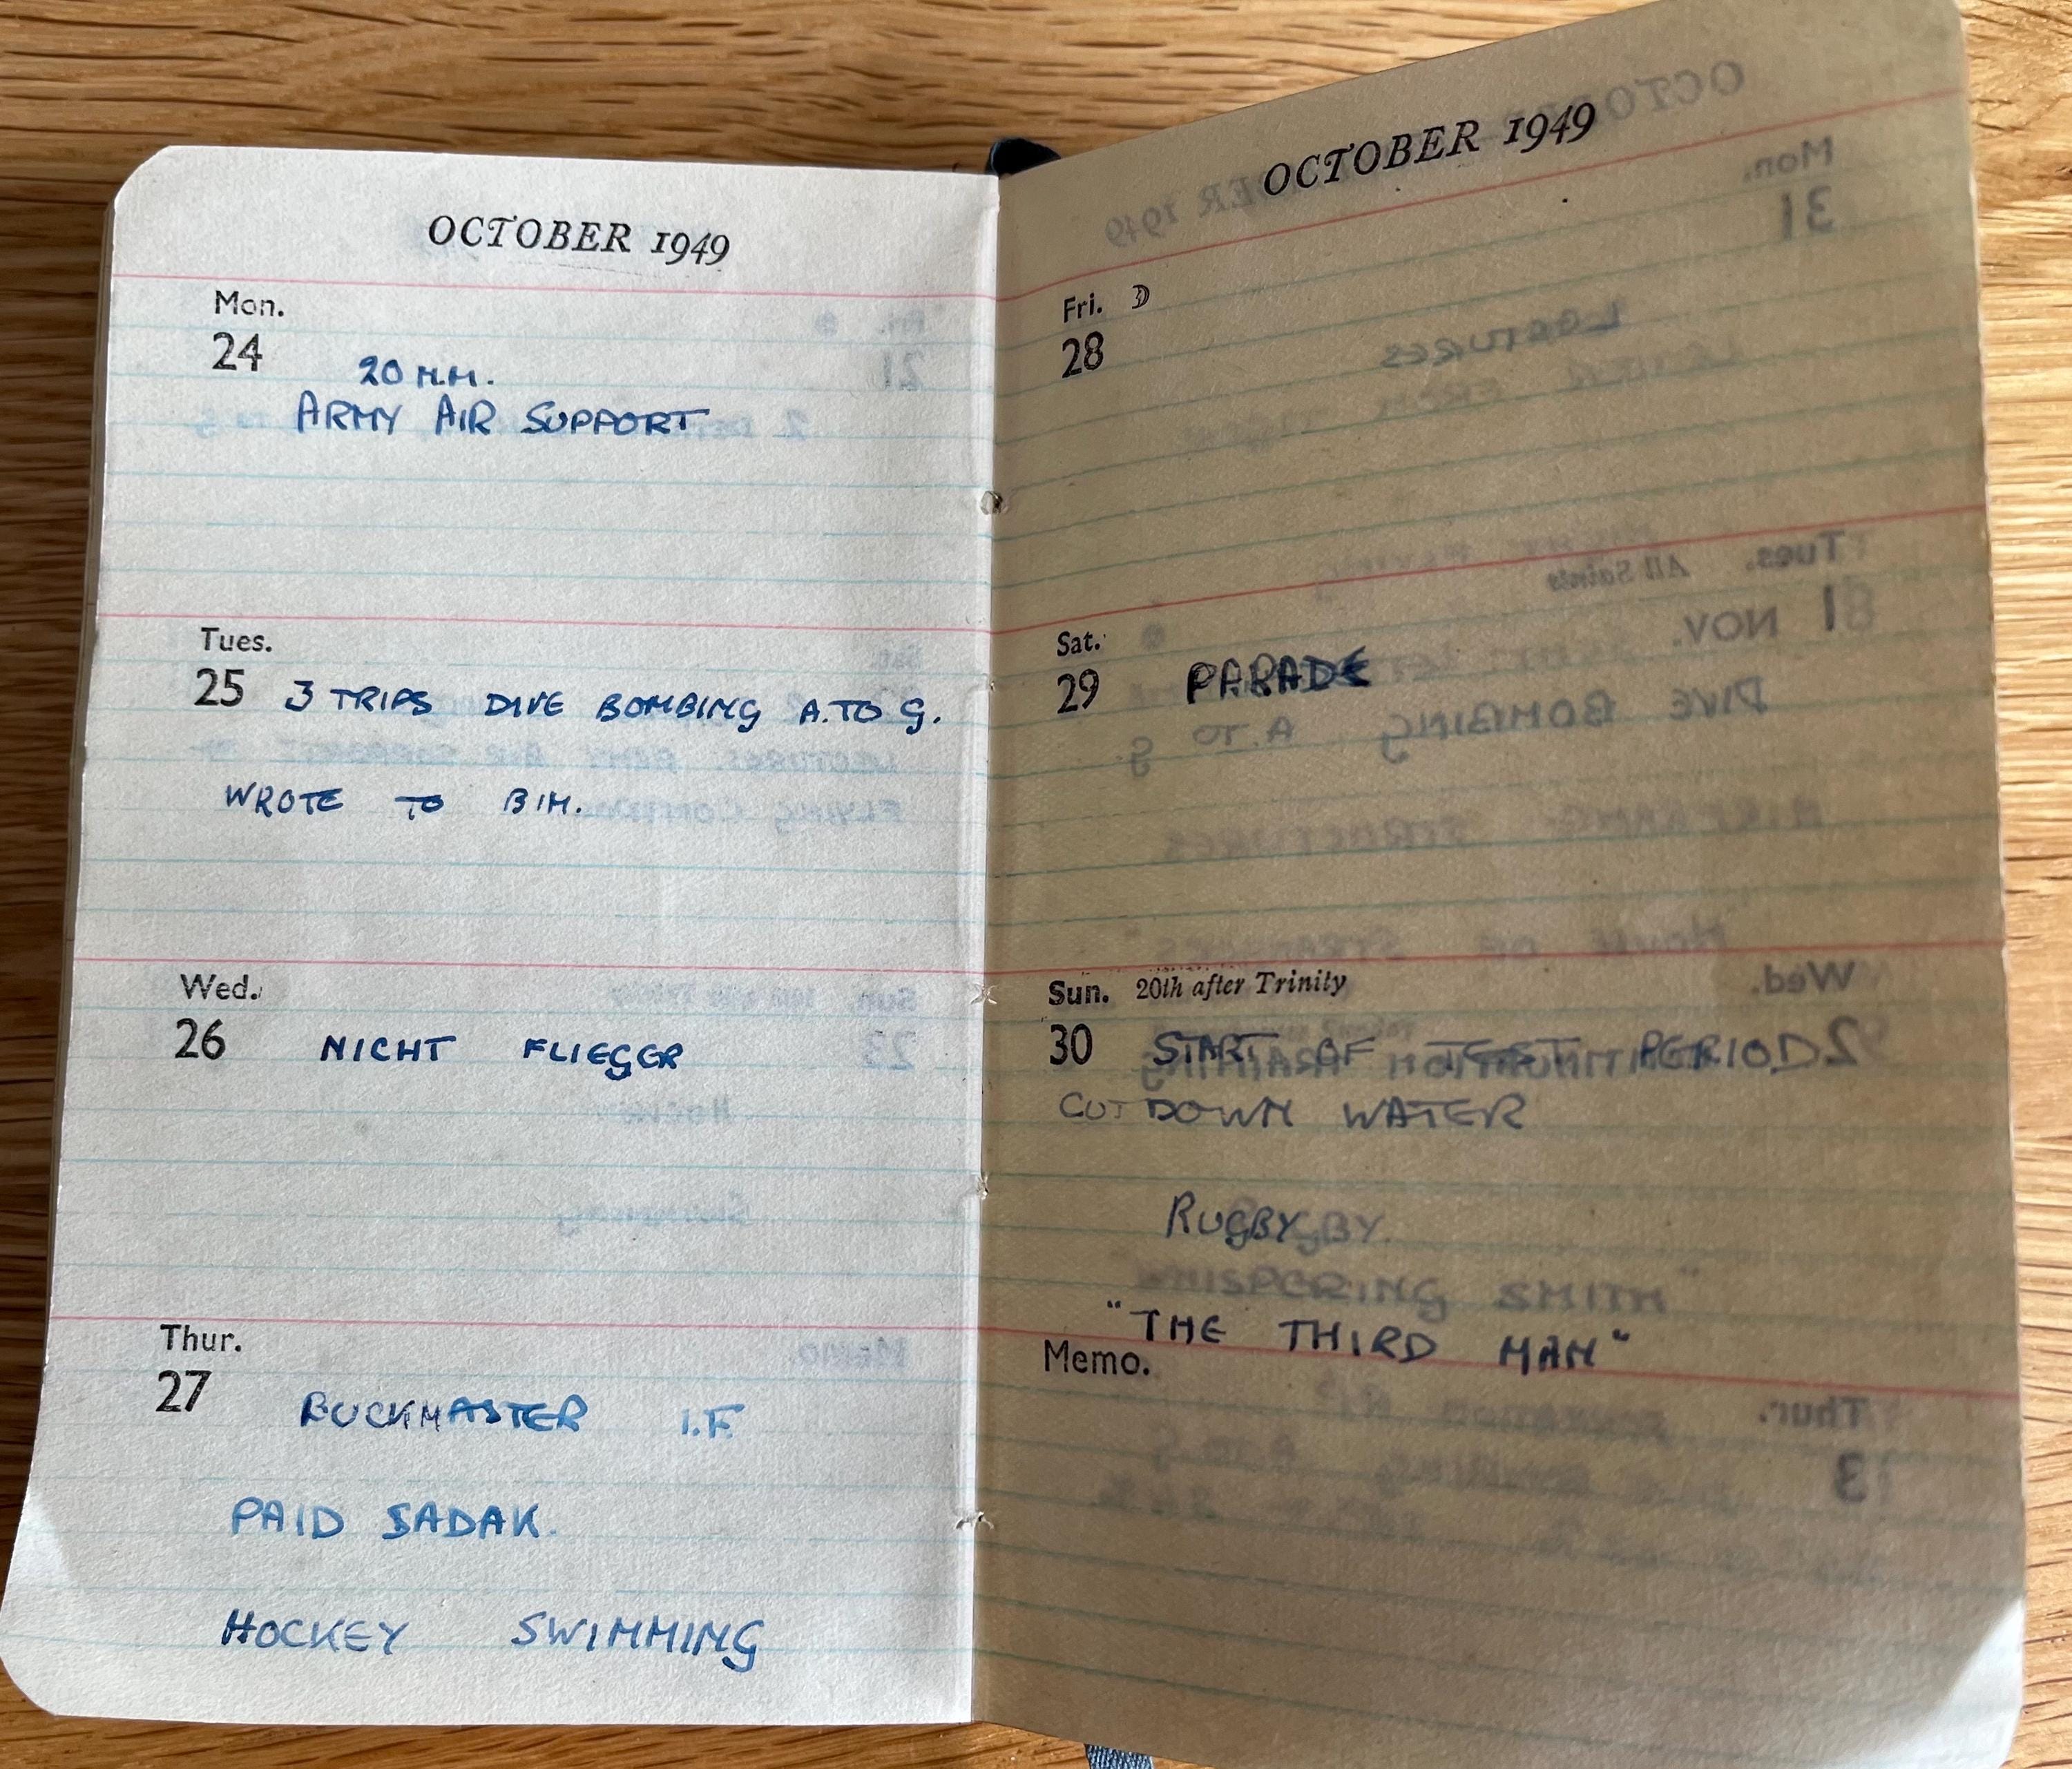 OCTOBER 1949
Mon.
24
20 M.M.
ARMY AIR SUPPORT
Tues.
25 3 TRIPS DIVE BOMBING A.TO G.
WROTE TO BIM.
Wed.
26 NICHT FLIEGER
Thur.
27 BUCKMASTER I.F.
PAID SADAK.
HOCKEY SWIMMING
OCTOBER 1949
Fri.
28
Sat.
29 PARADE
Sun. 20th after Trinity
30 START OF TEST PERIOD
CUT DOWN WATER
RUGBY
"THE THIRD MAN"
Memo.